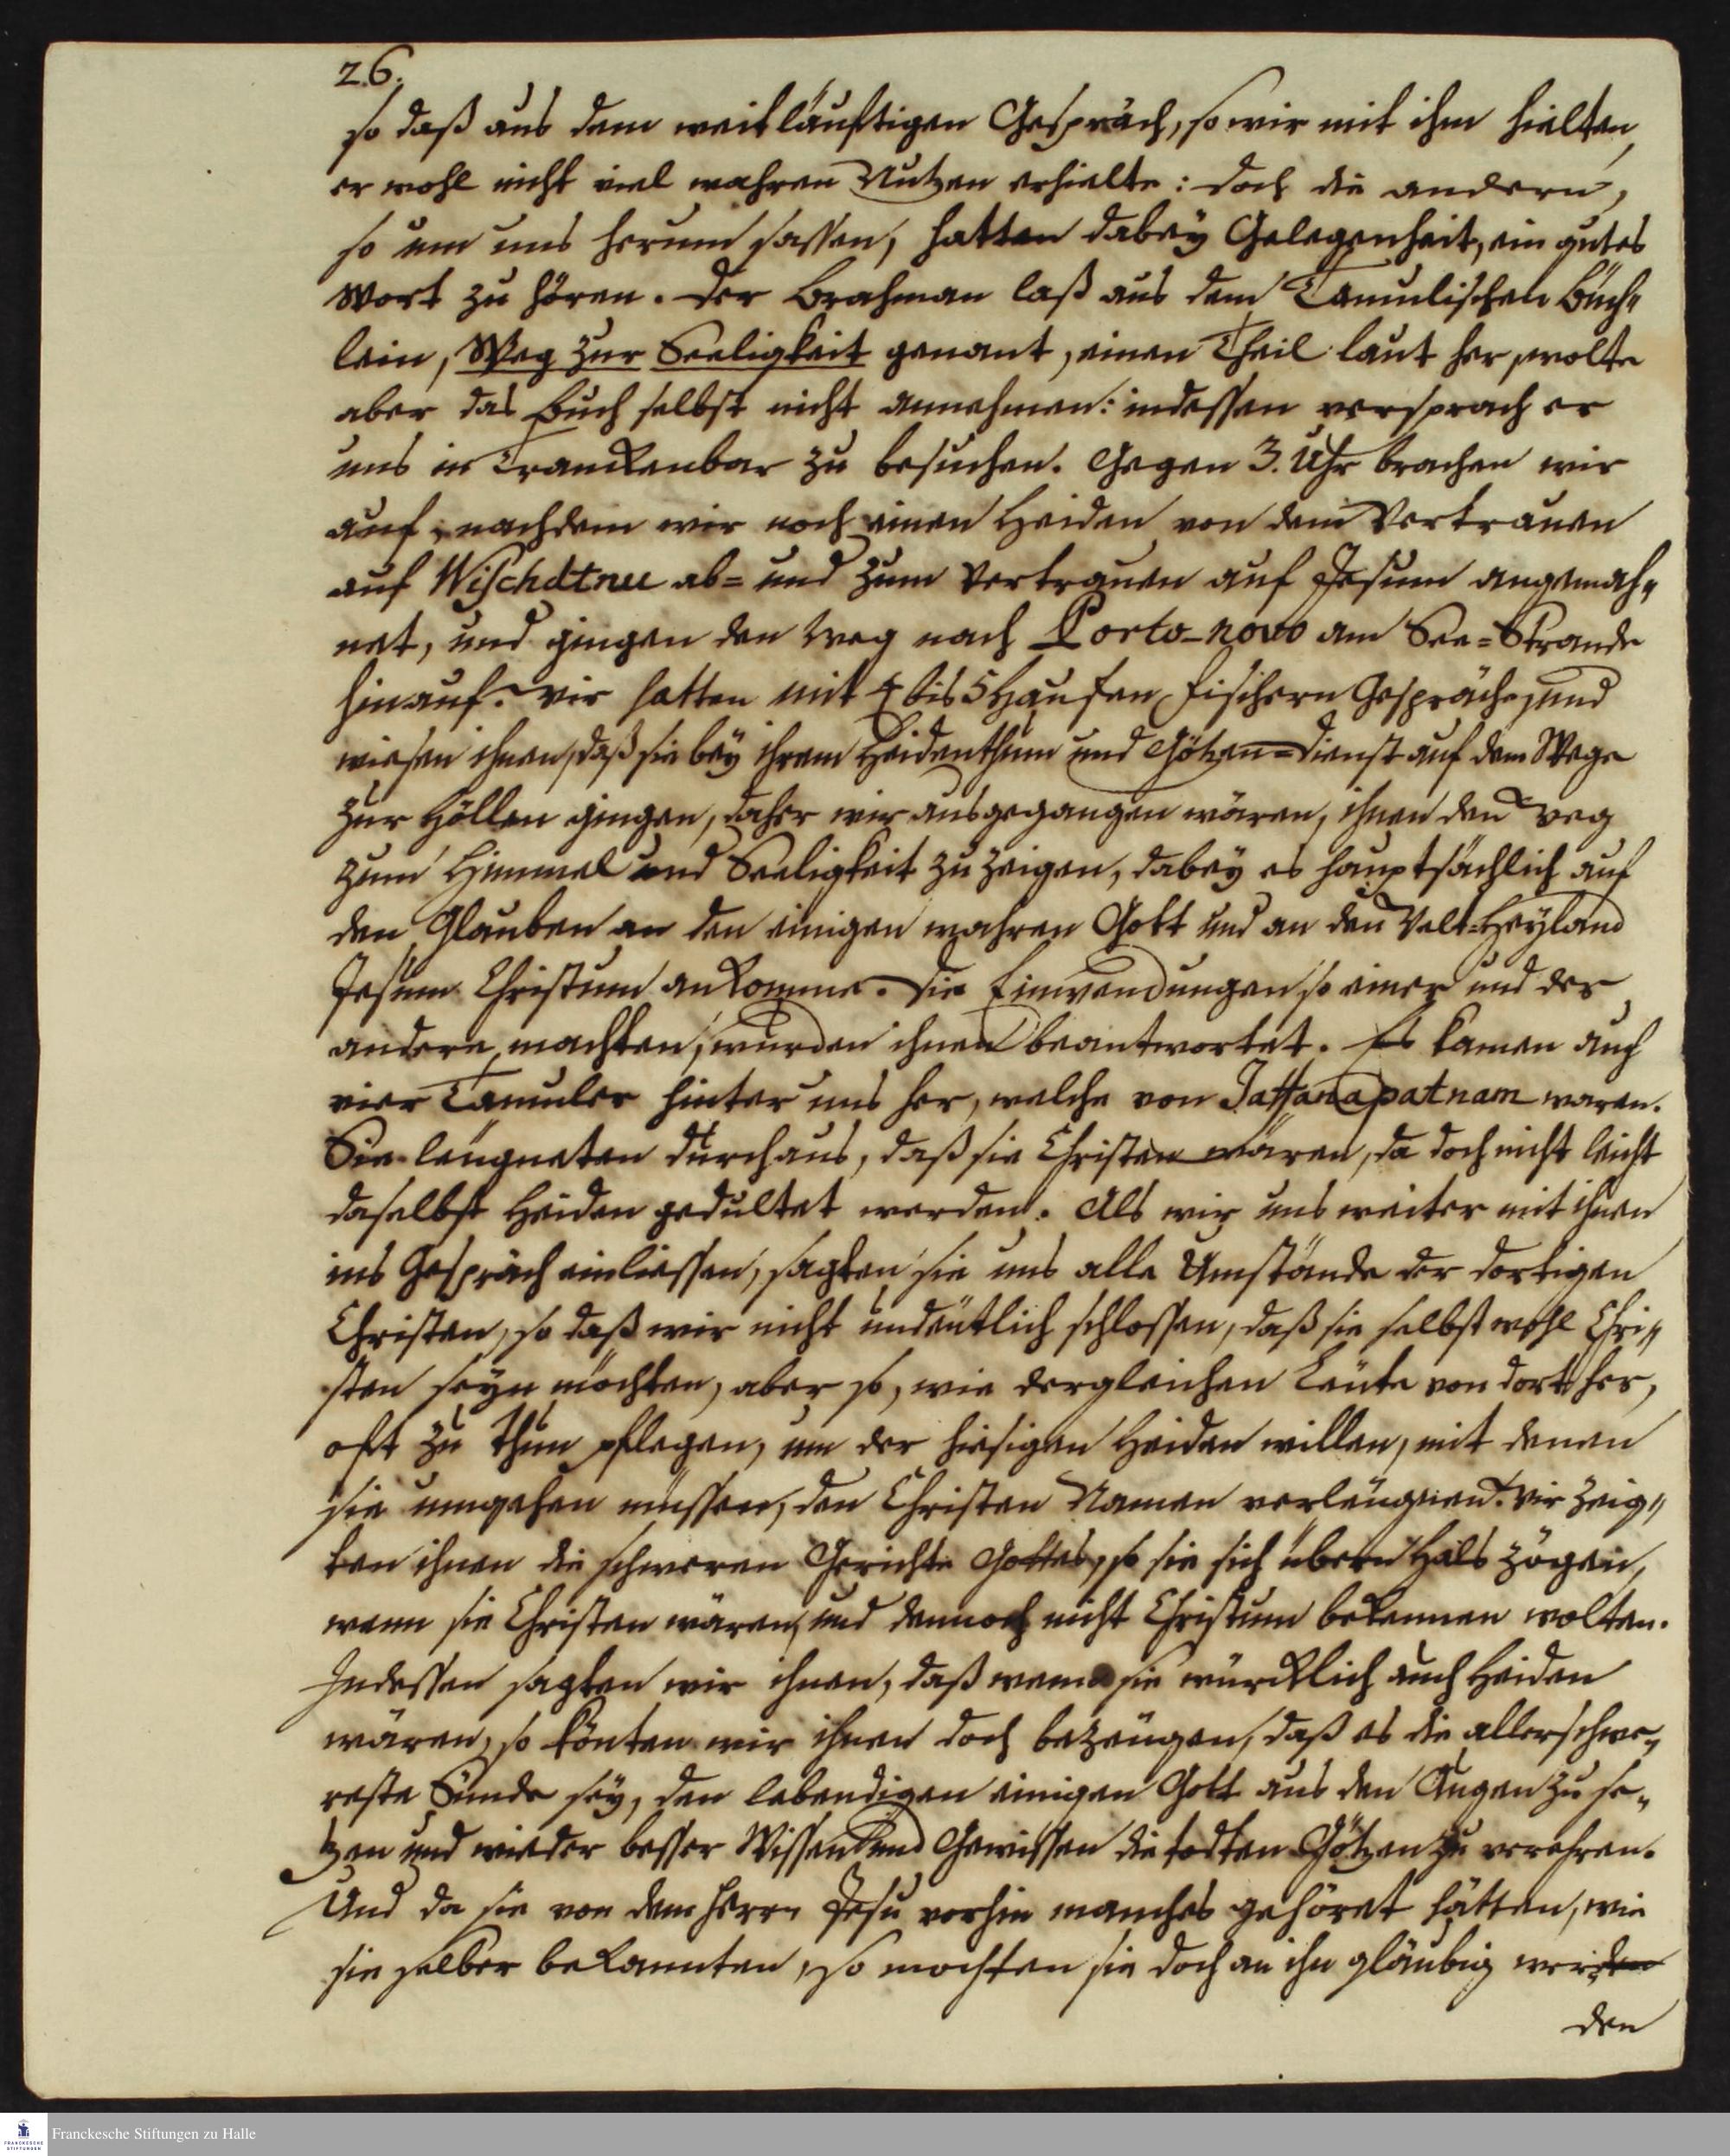 26.
so daß aus dem weitläuftigen Gespräch, so wir mit ihm hielten,
er wohl nicht viel wahren Nutzen erhielte: doch die andern,
so um uns herum sassen, hatten dabey Gelegenheit, ein gutes
Wort zu hören. Der Brahman laß aus dem Tamulischen Büch„
lein, Weg zur Seeligkeit genant, einen Theil laut her, wolte
aber das Buch selbst nicht annehmen: indessen versprach er
uns in Tranckenbar zu besuchen. Gegen 3. Uhr brachen wir
auf, nachdem wir noch einen Heiden von dem Vertrauen
auf Wischdtnu ab= und zum Vertrauen auf Jesum angemah„
net, und gingen den Weg nach Porto-novo am See=Strande
hinauf. Wir hatten mit 4 bis 5 Haufen Fischern Gespräche, und
wiesen ihnen, daß sie bey ihrem Heidenthum und Götzen=Dienst auf dem Wege
zur Höllen gingen, daher wir ausgegangen wären, ihnen den Weg
zum Himmel und Seeligkeit zu zeigen, dabey es hauptsächlich auf
den Glauben an den einigen wahren Gott und an den Welt=Heyland
Jesum Christum ankomme. Die Einwendungen so einer und der
andere machten, wurden ihnen beantwortet. Es kamen auch
vier Tamuler hinter uns her, welche von Jaffanapatnam waren.
Sie leugneten durchaus, daß sie Christen wären, da doch nicht leicht
daselbst Heiden gedultet werden. Als wir uns weiter mit ihnen
ins Gespräch einliessen, sagten sie uns alle Umstände der dortigen
Christen, so daß wir nicht undeutlich schlossen, daß sie selbst wohl Chri„
sten seyn möchten, aber so, wie dergleichen Leute von dort her,
oft zu thun pflegen, um der hiesigen Heiden willen, mit denen
sie umgehen müssen, den Christen Namen verleugnen. Wir zeig„
ten ihnen die schweren Gerichte Gottes, so sie sich übern Hals zögen,
wenn sie Christen wären, und dennoch nicht Christum bekennen wolten.
Indessen sagten wir ihnen, daß wenn sie würcklich auch Heiden
wären, so könten wir ihnen doch bezeugen, daß es die allerschwe„
reste Sünde sey, den lebendigen einigen Gott aus den Augen zu se„
tzen und wieder besser Wissen und Gewissen die todten Götzen zu verehren.
Und da sie von dem Herrn Jesu vorhin manches gehöret hätten, wie
sie selber bekannten, so mochten sie doch an ihn gläubig werden
den
Franckesche Stiftungen zu Halle